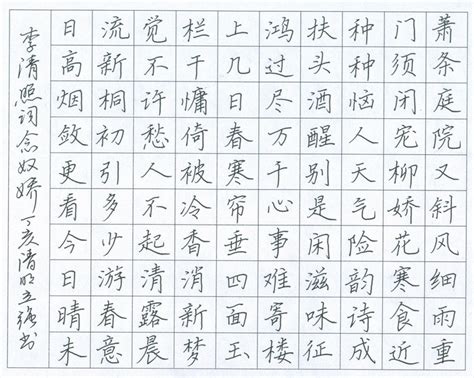 萧条庭院又斜风细雨重
门须闭宠柳娇花寒食近
种种恼人天气险韵诗成
扶头酒醒别是闲滋味征
鸿过尽万千心事难寄楼
上几日春寒帘垂四面玉
栏干慵倚被冷香消新梦
觉不许愁人不起清露晨
流新桐初引多少游春意
日高烟敛更看今日晴未
李清照词念奴娇丁亥清明立强书